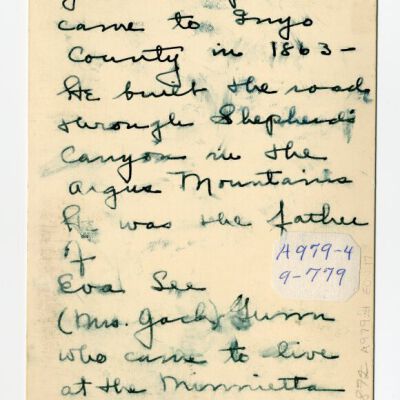 came to Inyo
County in 1863 -
He built the road
through Shepherds
Canyon in the
Argus Mountains
He was the father
of
Eva See
(Mrs. Jack) Gunn
who came to live
at the Minnietta
A979-4
9-779